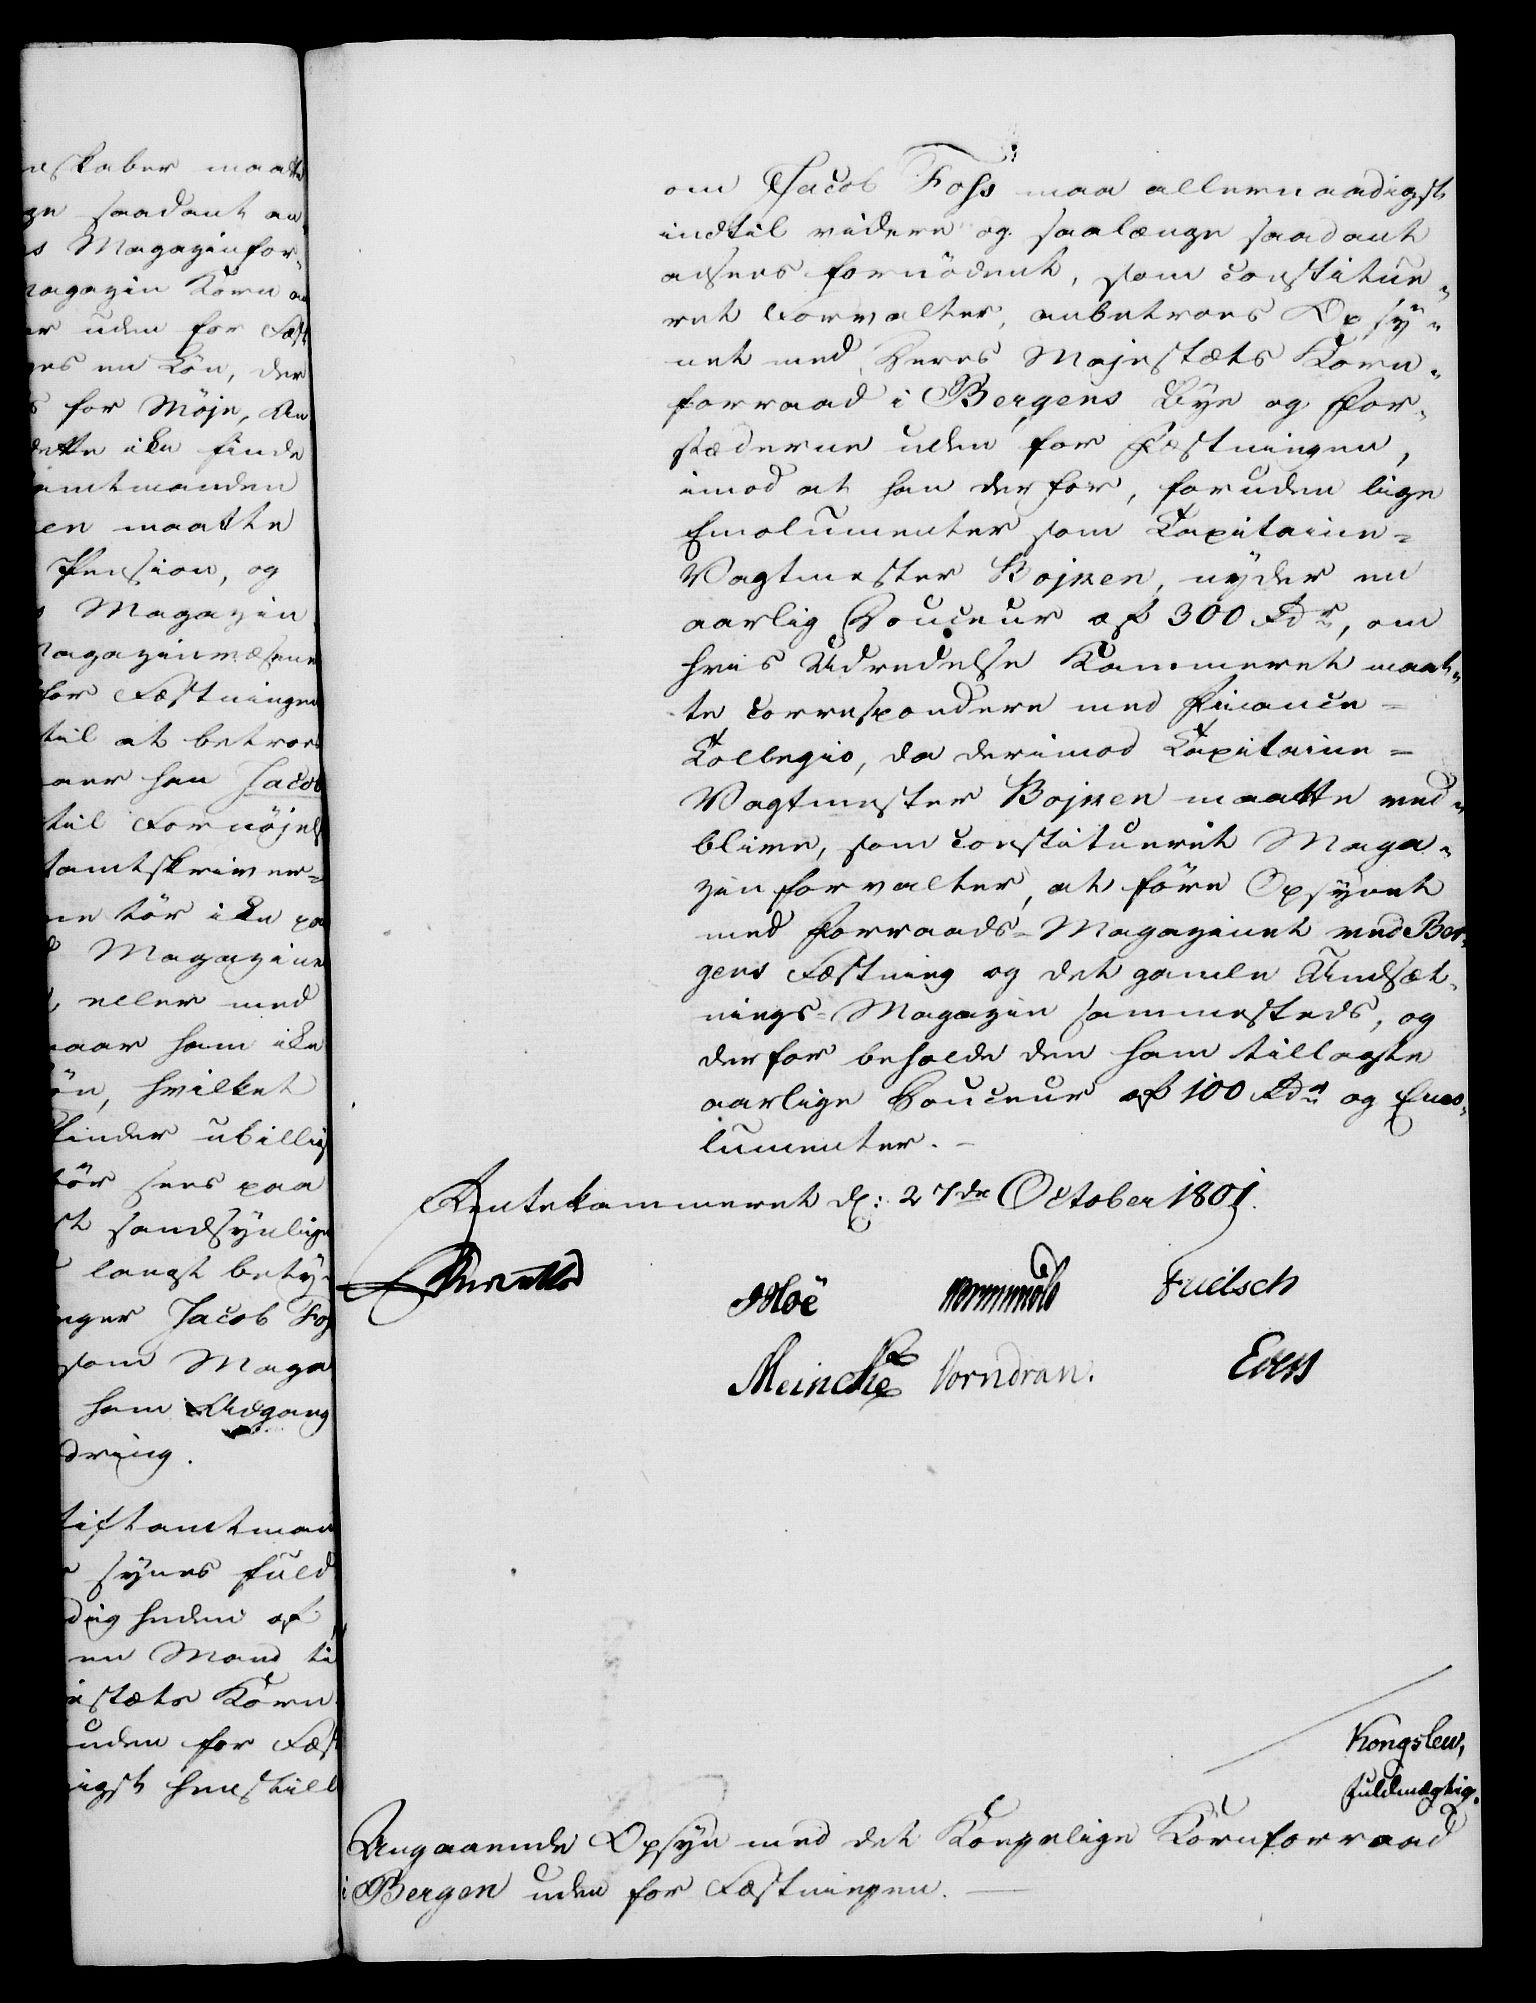 nskaber maatte
ge saadant an
s Magazinfor-
magazin Korn
er uden for Fæst
es en Lön, der
for Möje, An
dette ikke finde
amtmanden
en maatte
Pension, og
Magazin
Magazinvæsene
for Fæstningen
til at betroes
aer han Jacob
til Fornöjels
tamtskriver-
ne tör ikke paa
Magazine
, eller med
naar ham ikke
ön, hvilket
finder ubillig
tör sees paa
st sandsynlige
langt bety-
nger Jacob Fos
som Maga
ham Adgang
dring.
tiftamtman
synes fuld
dig heden af
en Mand til
estæts Korn
uden for Fæst
igst henstill
om Jacob Foss maa allernaadigst
indtil videre og saalænge saadant
ansees fornödent, som constitue-
ret Forvalter, anbetroes Opsÿ-
net med Deres Majestæts Korn-
forraad i Bergens Bye og For-
stæderne uden for Fæstningen,
imod at han derfor, foruden lige
Emolumenter som Capitaine-
Vagtmester Bojsen, nyder en
aarlig Douceur af 300 Rdr, om
hvis Udredelse Kammeret maat-
te correspondere med Finance-
Collegio, da derimod Capitaine-
Vagtmester Bojsen maatte ved-
blive, som constitueret Maga-
zinforvalter, at före Opsynet
med Forraads-Magazinet ved Ber-
gens Fæstning og det gamle Undsæt-
nings-Magazin sammesteds, og
derfor beholde den ham tillagte
aarlige Douceur af 100 Rdr og Emo-
lumenter.
Rentekammeret d: 27de October 1801.
Moë Wormskiold Frielsch
Meincke Vorndran. Evers
Kongslew,
fuldmægtig.
Angaaende Opsyn med det Kongelige Kornforraad
i Bergen uden for Fæstningen.